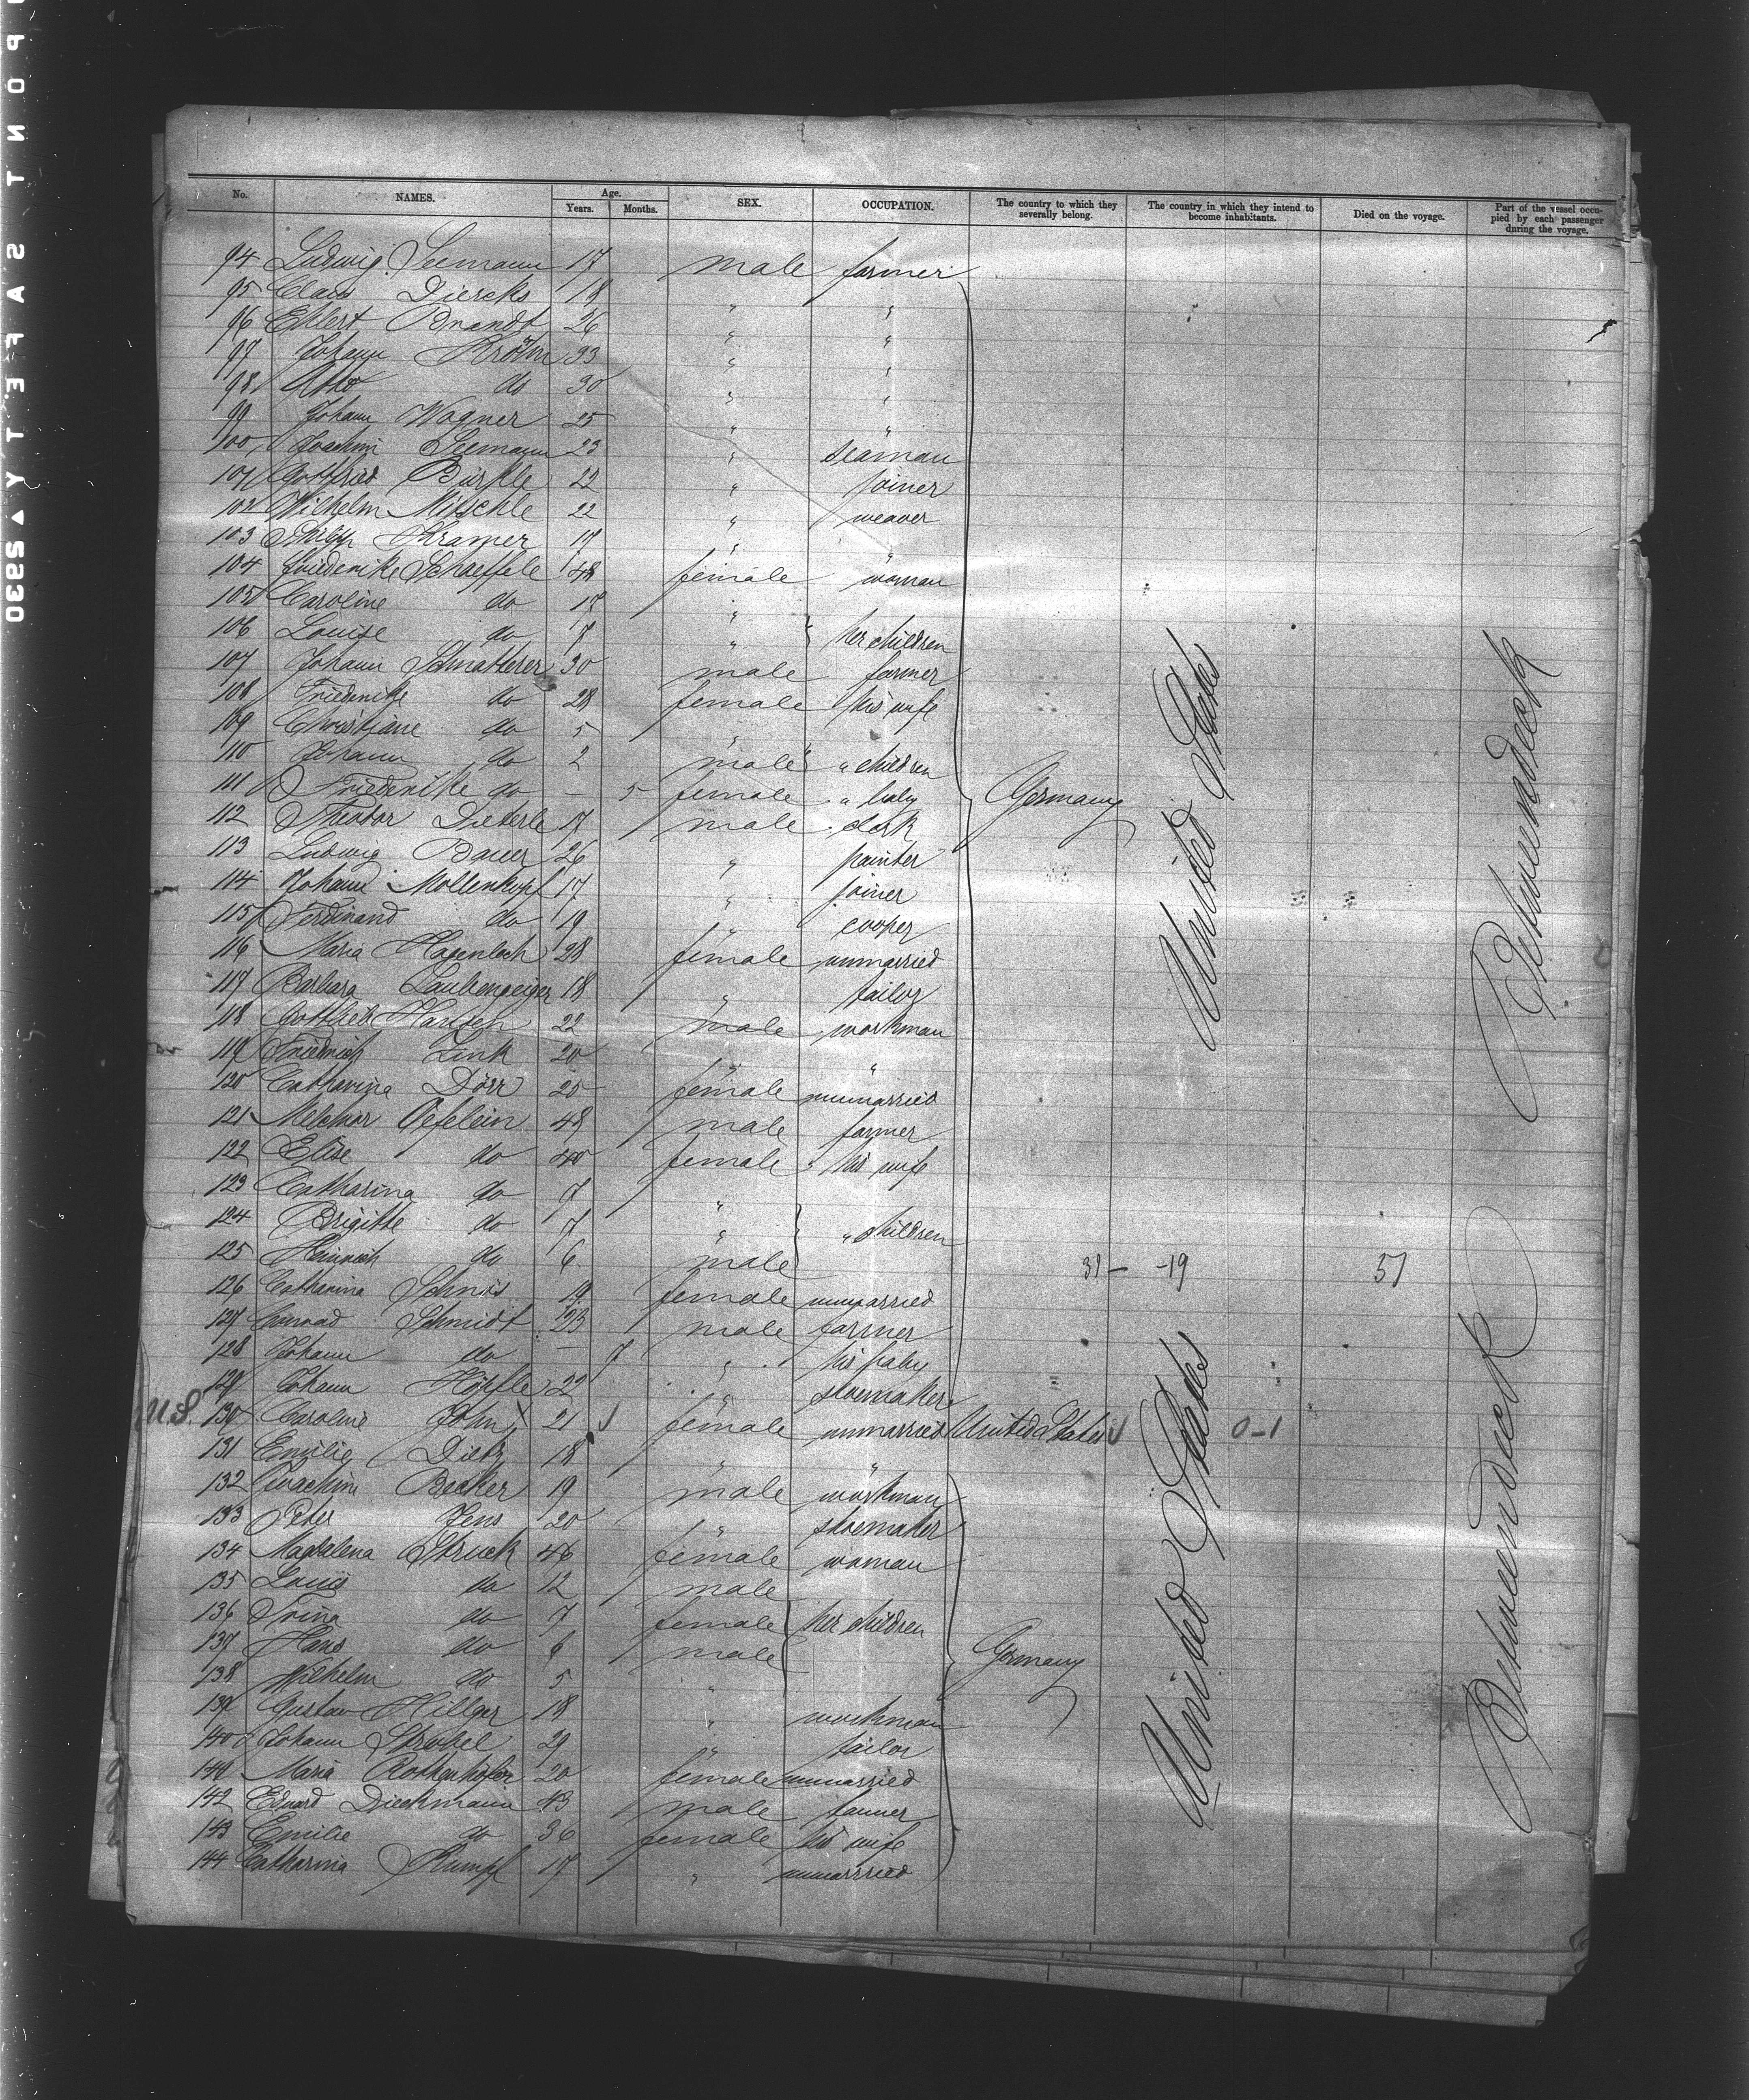 No. NAMES. Age. Years. Months. SEX. OCCUPATION. The country to which they severally belong. The country in which they intend to become inhabitants. Died on the voyage. Part of the vessel occupied by each passenger during the voyage.
94 Ludwig Seemann 17 male farmer
95 Claus Diercks 18 " "
96 Ehlert Brandt 26 " "
97 Johann Kröhn 33 " "
98 Otto do 30 " "
99 Johann Wagner 25 " "
100 Joachim Seemann 23 " seaman
101 Gottfried Bürkle 22 " joiner
102 Wilhelm Mitschle 22 " weaver
103 Philipp Kramer 17 " "
104 Friederike Schaeffele 48 female woman
105 Caroline do 17 "
106 Louise do 7 " her children
107 Johann Schnatterer 30 male farmer
108 Friederike do 28 female his wife
109 Christiane do 5 "
110 Johann do 2 male " children
111 Friederike do - 5 female " baby
112 Theodor Dieterle 17 male clerk
Germany
United States
Betweendeck
113 Ludwig Bauer 26 " painter
114 Johann Mollenkopf 17 " joiner
115 Ferdinand do 19 " cooper
116 Maria Hagenloch 28 female unmarried
117 Barbara Laubengeiger 18 " tailor
118 Gottlieb Hansen 22 male workman
119 Friedrich Link 20 " "
120 Catharina Dörr 25 female unmarried
121 Melchior Oefelein 48 male farmer
122 Elise do 40 female his wife
123 Catharina do 7 "
124 Brigitte do 7 " " children
125 Heinrich do 6 male
31 - -19 51
126 Catharina 19 female unmarried
127 Conrad Schmidt 23 male farmer
128 Johann do - 7 " his baby
129 Johann Höpfle 22 " shoemaker
U.S. 130 Caroline John 21 female unmarried United States 0-1
131 Emilie Dietz 18 " "
132 Joachim Becker 19 male workman
133 Peter Jens 20 " shoemaker
134 Magdalena Struck 46 female woman
135 Louis do 12 male
136 Trina do 7 female her children
137 Hans do 6 male
138 Wilhelm do 5 "
Germany
United States
Betweendeck
139 Gustav Hillger 18 " workman
140 Johann Strobel 29 " tailor
141 Maria Rothenhöfer 20 female unmarried
142 Eduard Dieckmann 43 male
143 Emilie do 36 female his wife
144 Catharina Rumpf 17 " unmarried